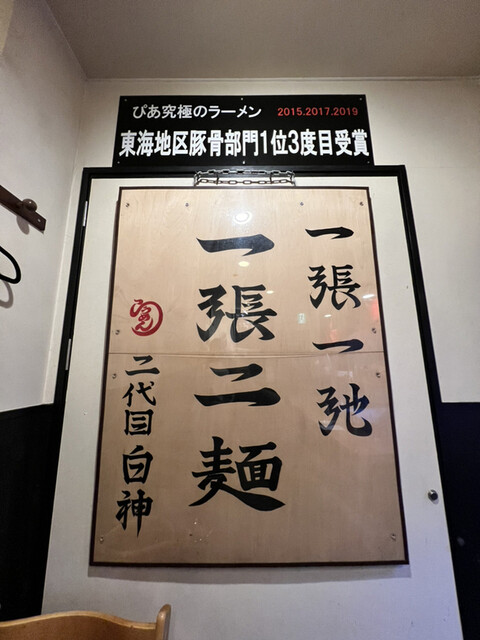 ぴあ究極のラーメン 2015.2017.2019
東海地区豚骨部門1位3度目受賞
一張一弛
一張二麺
らぁめん
二代目白神